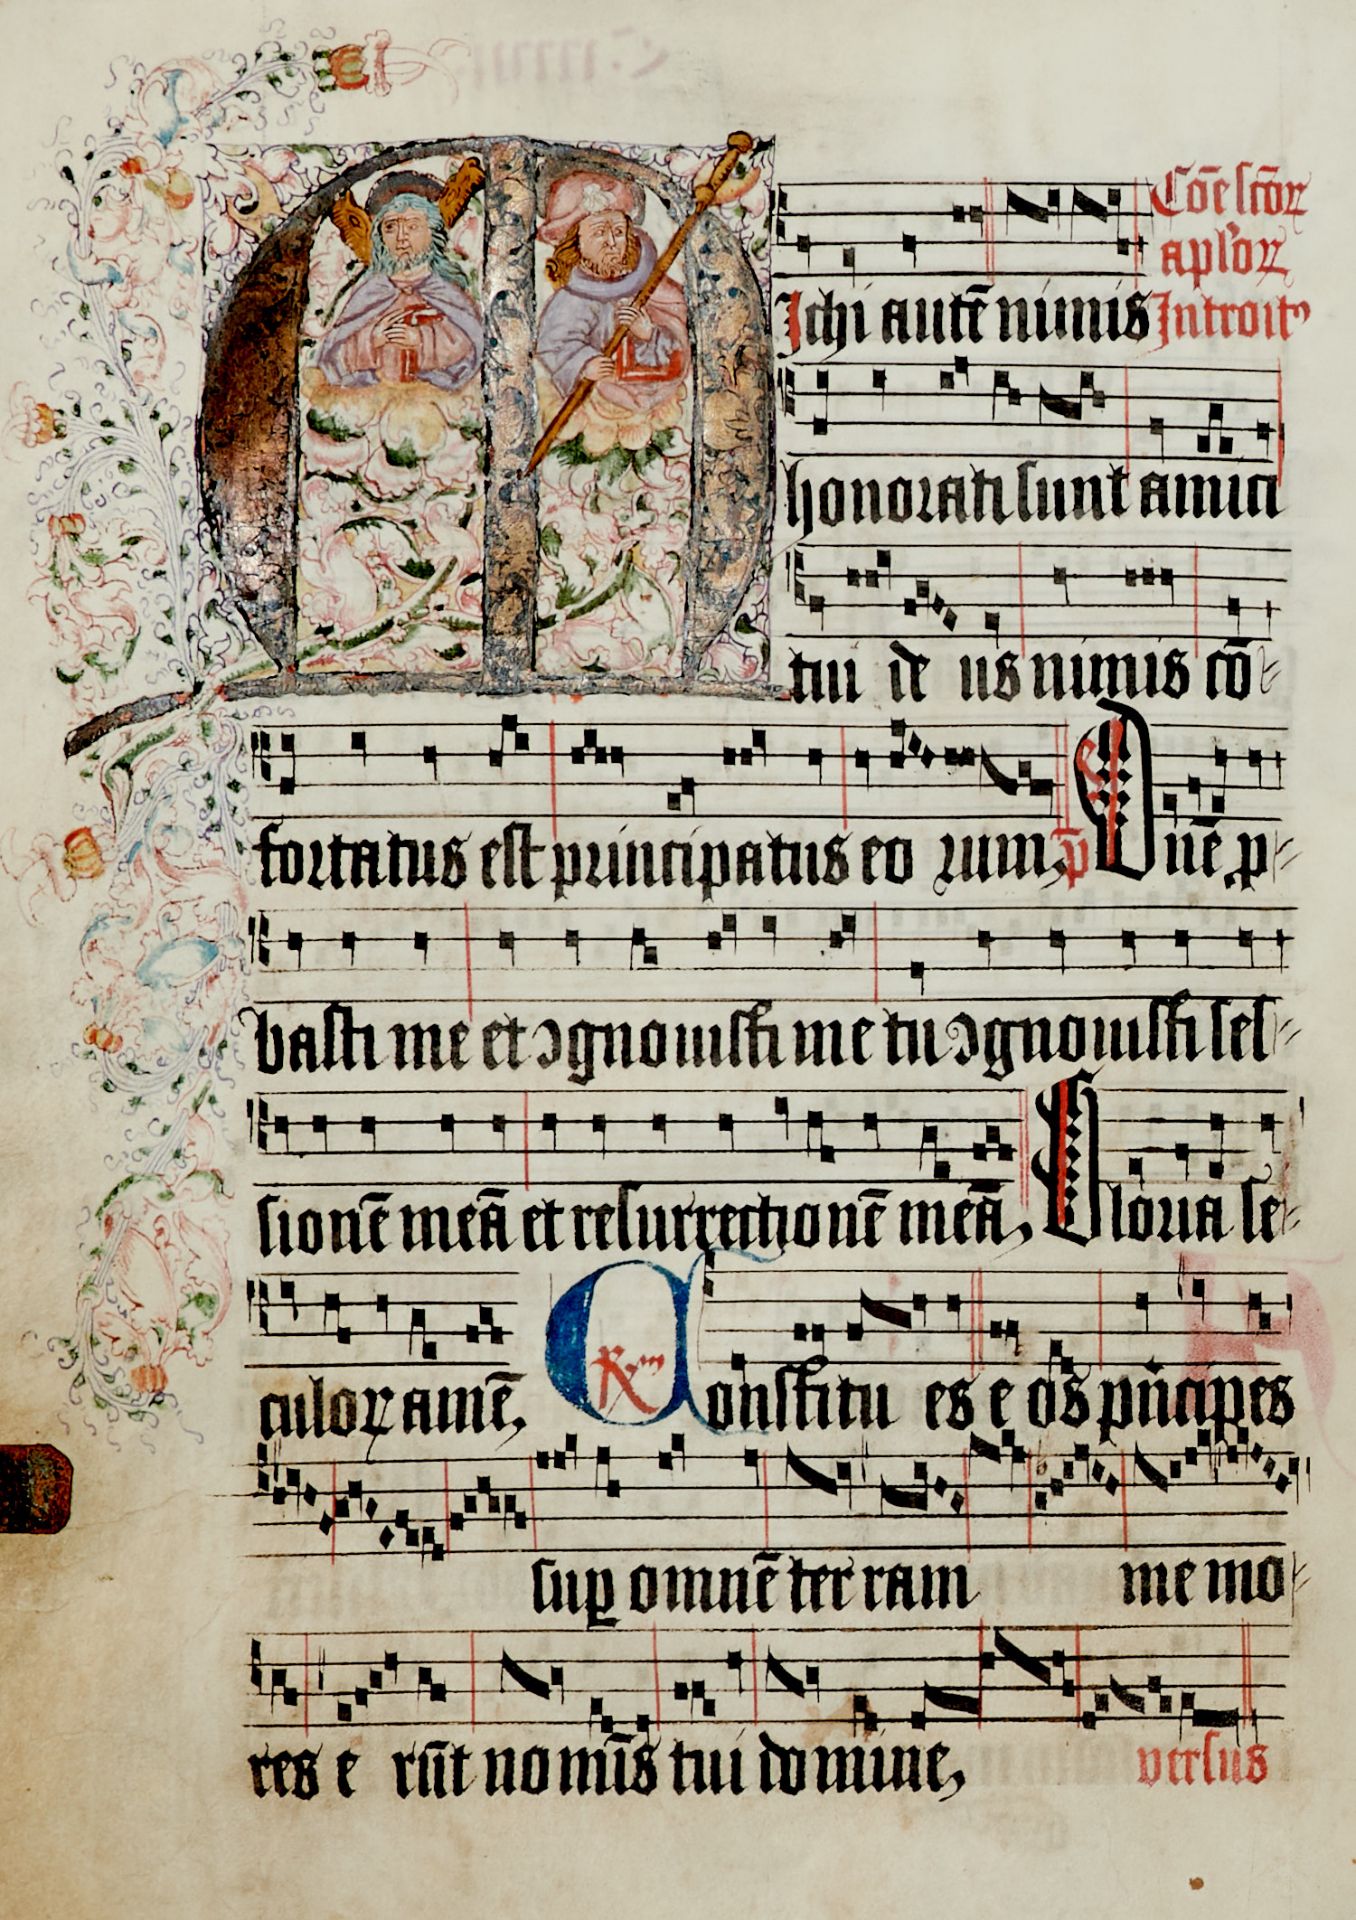 Cōe sctōꝝ
apl'oꝝ
Michi autē nimis Introitꝰ
honorati sunt amici
tui de us nimis cō-
fortatus est principatus eo rum, p̄ Dn̄e ꝓ-
basti me et ꝯgnouisti me tu ꝯgnouisti ses-
sionē meā et resurrectionē meā, Gloria se-
culoꝝ amē, Rm Constitu es e os pn̄cipes
suꝑ omnē ter ram memo-
res e rūt no mīs tui domine, versus